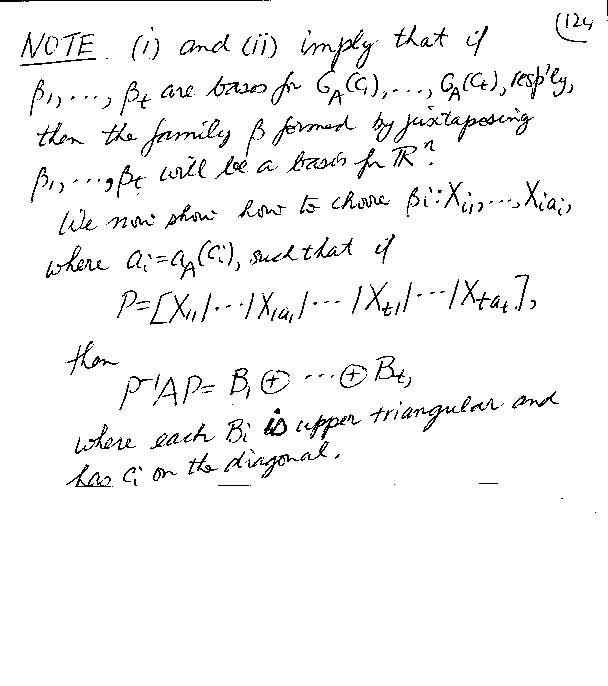 (124
NOTE. (i) and (ii) imply that if
β₁,..., βₜ are bases for G_A(c₁),..., G_A(cₜ), resp'ly,
then the family β formed by juxtaposing
β₁,..., βₜ will be a basis for ℝⁿ.
We now show how to choose βi: Xi₁,..., Xiaᵢ,
where aᵢ=a_A(cᵢ), such that if
P=[X₁₁|···|X₁ₐ₁|···|Xₜ₁|···|Xₜₐₜ],
then
P⁻¹AP= B₁ ⊕ ··· ⊕ Bₜ,
where each Bi is upper triangular and
has cᵢ on the diagonal.